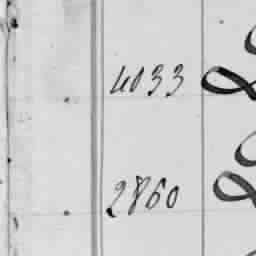 4033
2860